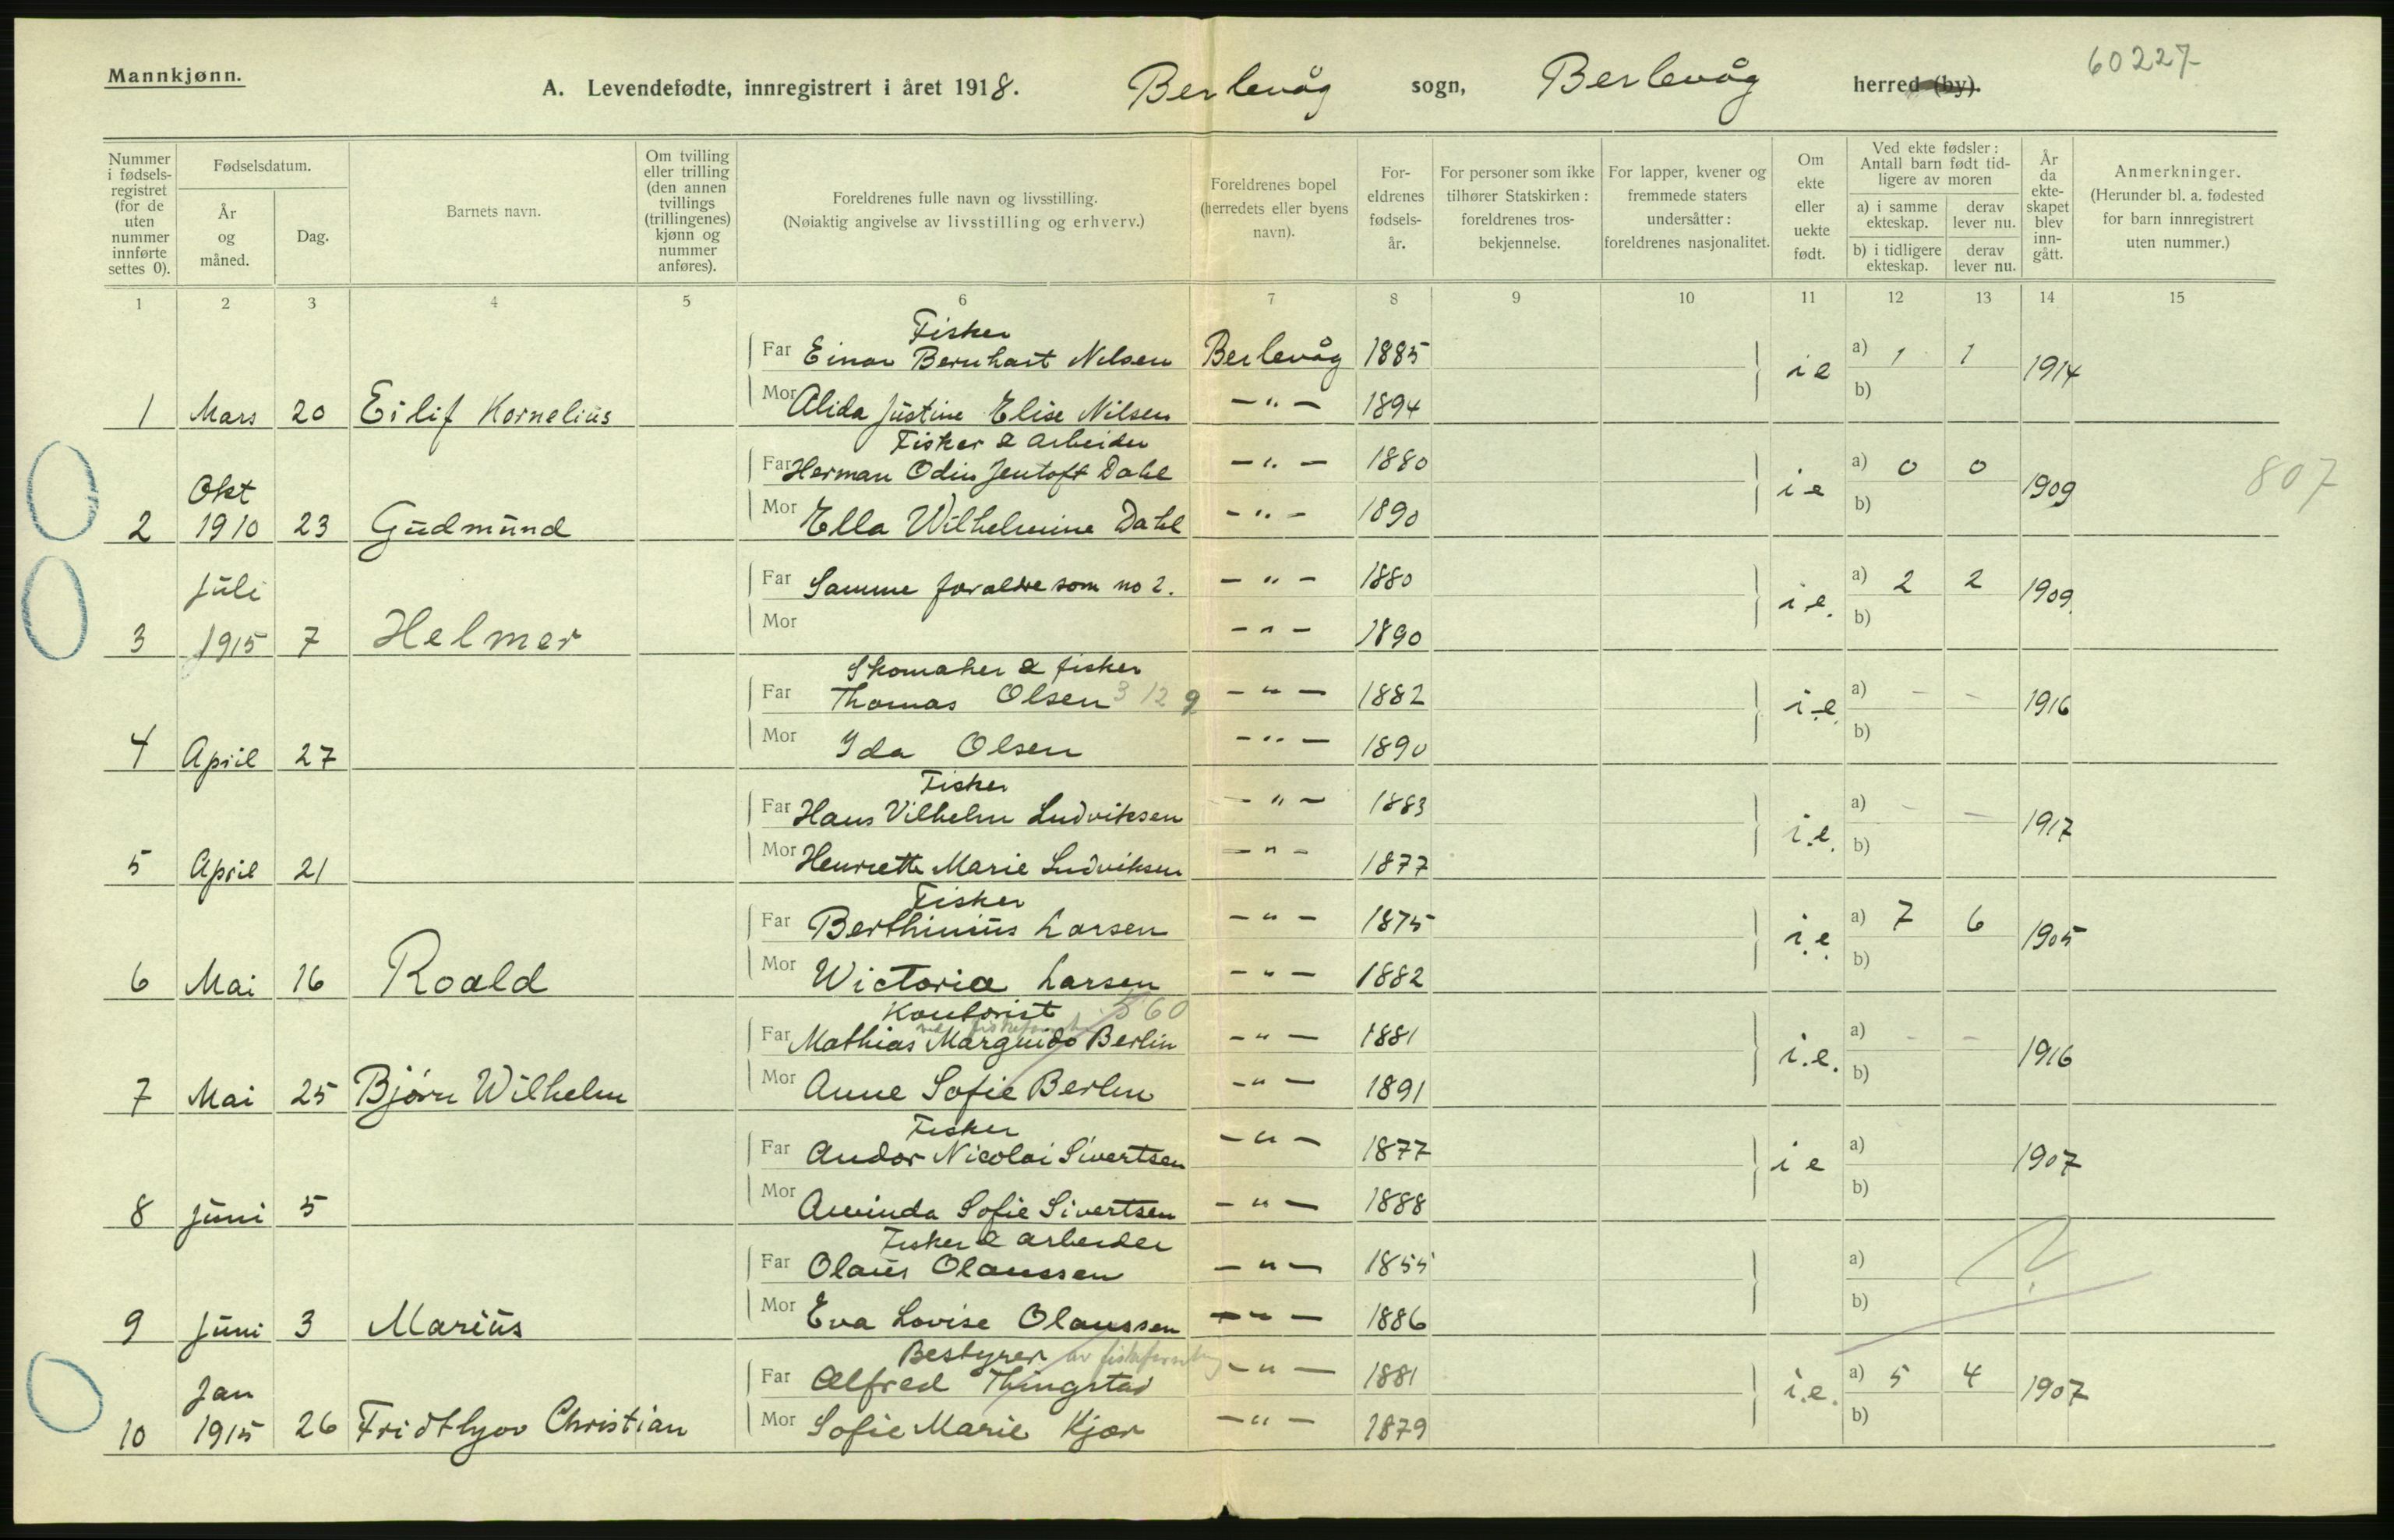 Mannkjønn.
60227
A. Levendefødte, innregistrert i året 1918. Berlevåg sogn, Berlevåg herred (by).
Nummer i fødsels-registret (for de uten nummer innførte settes 0).
Fødselsdatum.
År og måned.
Dag.
Barnets navn.
Om tvilling eller trilling (den annen tvillings (trillingenes) kjønn og nummer anføres).
Foreldrenes fulle navn og livsstilling.
(Nøiaktig angivelse av livsstilling og erhverv.)
Foreldrenes bopel (herredets eller byens navn).
For-eldrenes fødsels-år.
For personer som ikke tilhører Statskirken: foreldrenes tros-bekjennelse.
For lapper, kvener og fremmede staters undersåtter: foreldrenes nasjonalitet.
Om ekte eller uekte født.
Ved ekte fødsler: Antall barn født tid-ligere av moren
a) i samme ekteskap. derav lever nu.
b) i tidligere ekteskap. derav lever nu.
År da ekte-skapet blev inn-gått.
Anmerkninger.
(Herunder bl. a. fødested for barn innregistrert uten nummer.)
1 2 3 4 5 6 7 8 9 10 11 12 13 14 15
Fisker
Far Einar Bernhart Nilsen Berlevåg 1885 i e a) 1 1 1914
1 Mars 20 Eilif Kornelius Mor Alida Justine Elise Nilsen - " - 1894 b)
Fisker & arbeider
Far Herman Odin Jentoft Dahl - " - 1880 i e a) 0 0 1909 807
Okt
2 1910 23 Gudmund Mor Ella Wilhelmine Dahl - " - 1890 b)
Far Samme forældre som no 2. - " - 1880 i e. a) 2 2 1909
Juli
3 1915 7 Helmer Mor - " - 1890 b)
Skomaker & fisker
Far Thomas Olsen 3 12 9 - " - 1882 i.e. a) - - 1916
4 April 27 Mor Ida Olsen - " - 1890 b)
Fisker
Far Hans Vilhelm Ludviksen - " - 1883 i.e. a) - - 1917
5 April 21 Mor Henriette Marie Ludviksen - " - 1877 b)
Fisker
Far Berthinius Larsen - " - 1875 i.e. a) 7 6 1905
6 Mai 16 Roald Mor Wictoria Larsen - " - 1882 b)
Kontorist 560
Far Mathias Marguido Berlin - " - 1881 i.e. a) - - 1916
7 Mai 25 Bjørn Wilhelm Mor Anne Sofie Berlin - " - 1891 b)
Fisker
Far Andor Nicolai Sivertsen - " - 1877 i e a) 1907
8 Juni 5 Mor Sofie Sivertsen - " - 1888 b)
Fisker & arbeider
Far Olaus Olaussen - " - 1855 a) ?
9 Juni 3 Marius Mor Eva Lovise Olaussen - " - 1886 b)
Bestyrer av
Far Alfred Thingstad - " - 1881 i.e. a) 5 4 1907
Jan
10 1915 26 Fridthjov Christian Mor Sofie Marie Kjær - " - 1879 b)